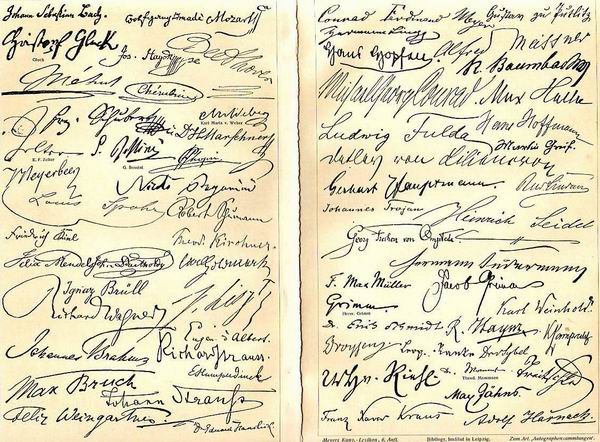 Johann Sebastian Bach.
Wolfgang Amadé Mozart
Christoph Gluck
Gluck
Jos. Haydn
Beethoven
Méhul
Cherubini
Schubert
Weber
Karl Maria v. Weber
Zelter
K. F. Zelter
G. Rossini
G. Rossini
H. Marschner
Chopin
Meyerbeer
Nicolò Paganini
Louis Spohr
Robert Schumann
Friedrich Kiel
Theod. Kirchner
Felix Mendelssohn Bartholdy
Carl Goldmark
Ignaz Brüll
F. Liszt
Richard Wagner
Eugen d'Albert
Johannes Brahms
Richard Strauss
E. Humperdinck
Max Bruch
Johann Strauss
Felix Weingartner
Dr Eduard Hanslick
Conrad Ferdinand Meyer
Gustav zu Putlitz
Hermann Lingg
Hans Hopfen
Alfred Meissner
R. Baumbach
Michael Georg Conrad
Max Halbe
Ludwig Fulda
Hans Hoffmann
Martin Greif
Detlev von Liliencron
Gerhart Hauptmann.
Johannes Trojan
Heinrich Seidel
Georg Freiherr von Ompteda
Hermann Sudermann
F. Max Müller
Jacob Grimm
Grimm
Herm. Grimm
Karl Weinhold
Dr. Erich Schmidt
R. Haym
Droysen
Theod. Mommsen
Treitschke
W. H. Riehl
Max Jähns
Franz Xaver Kraus
Adolf Harnack
Meyers Konv.-Lexikon, 6. Aufl.
Bibliogr. Institut in Leipzig.
Zum Art. 'Autographensammlungen'.